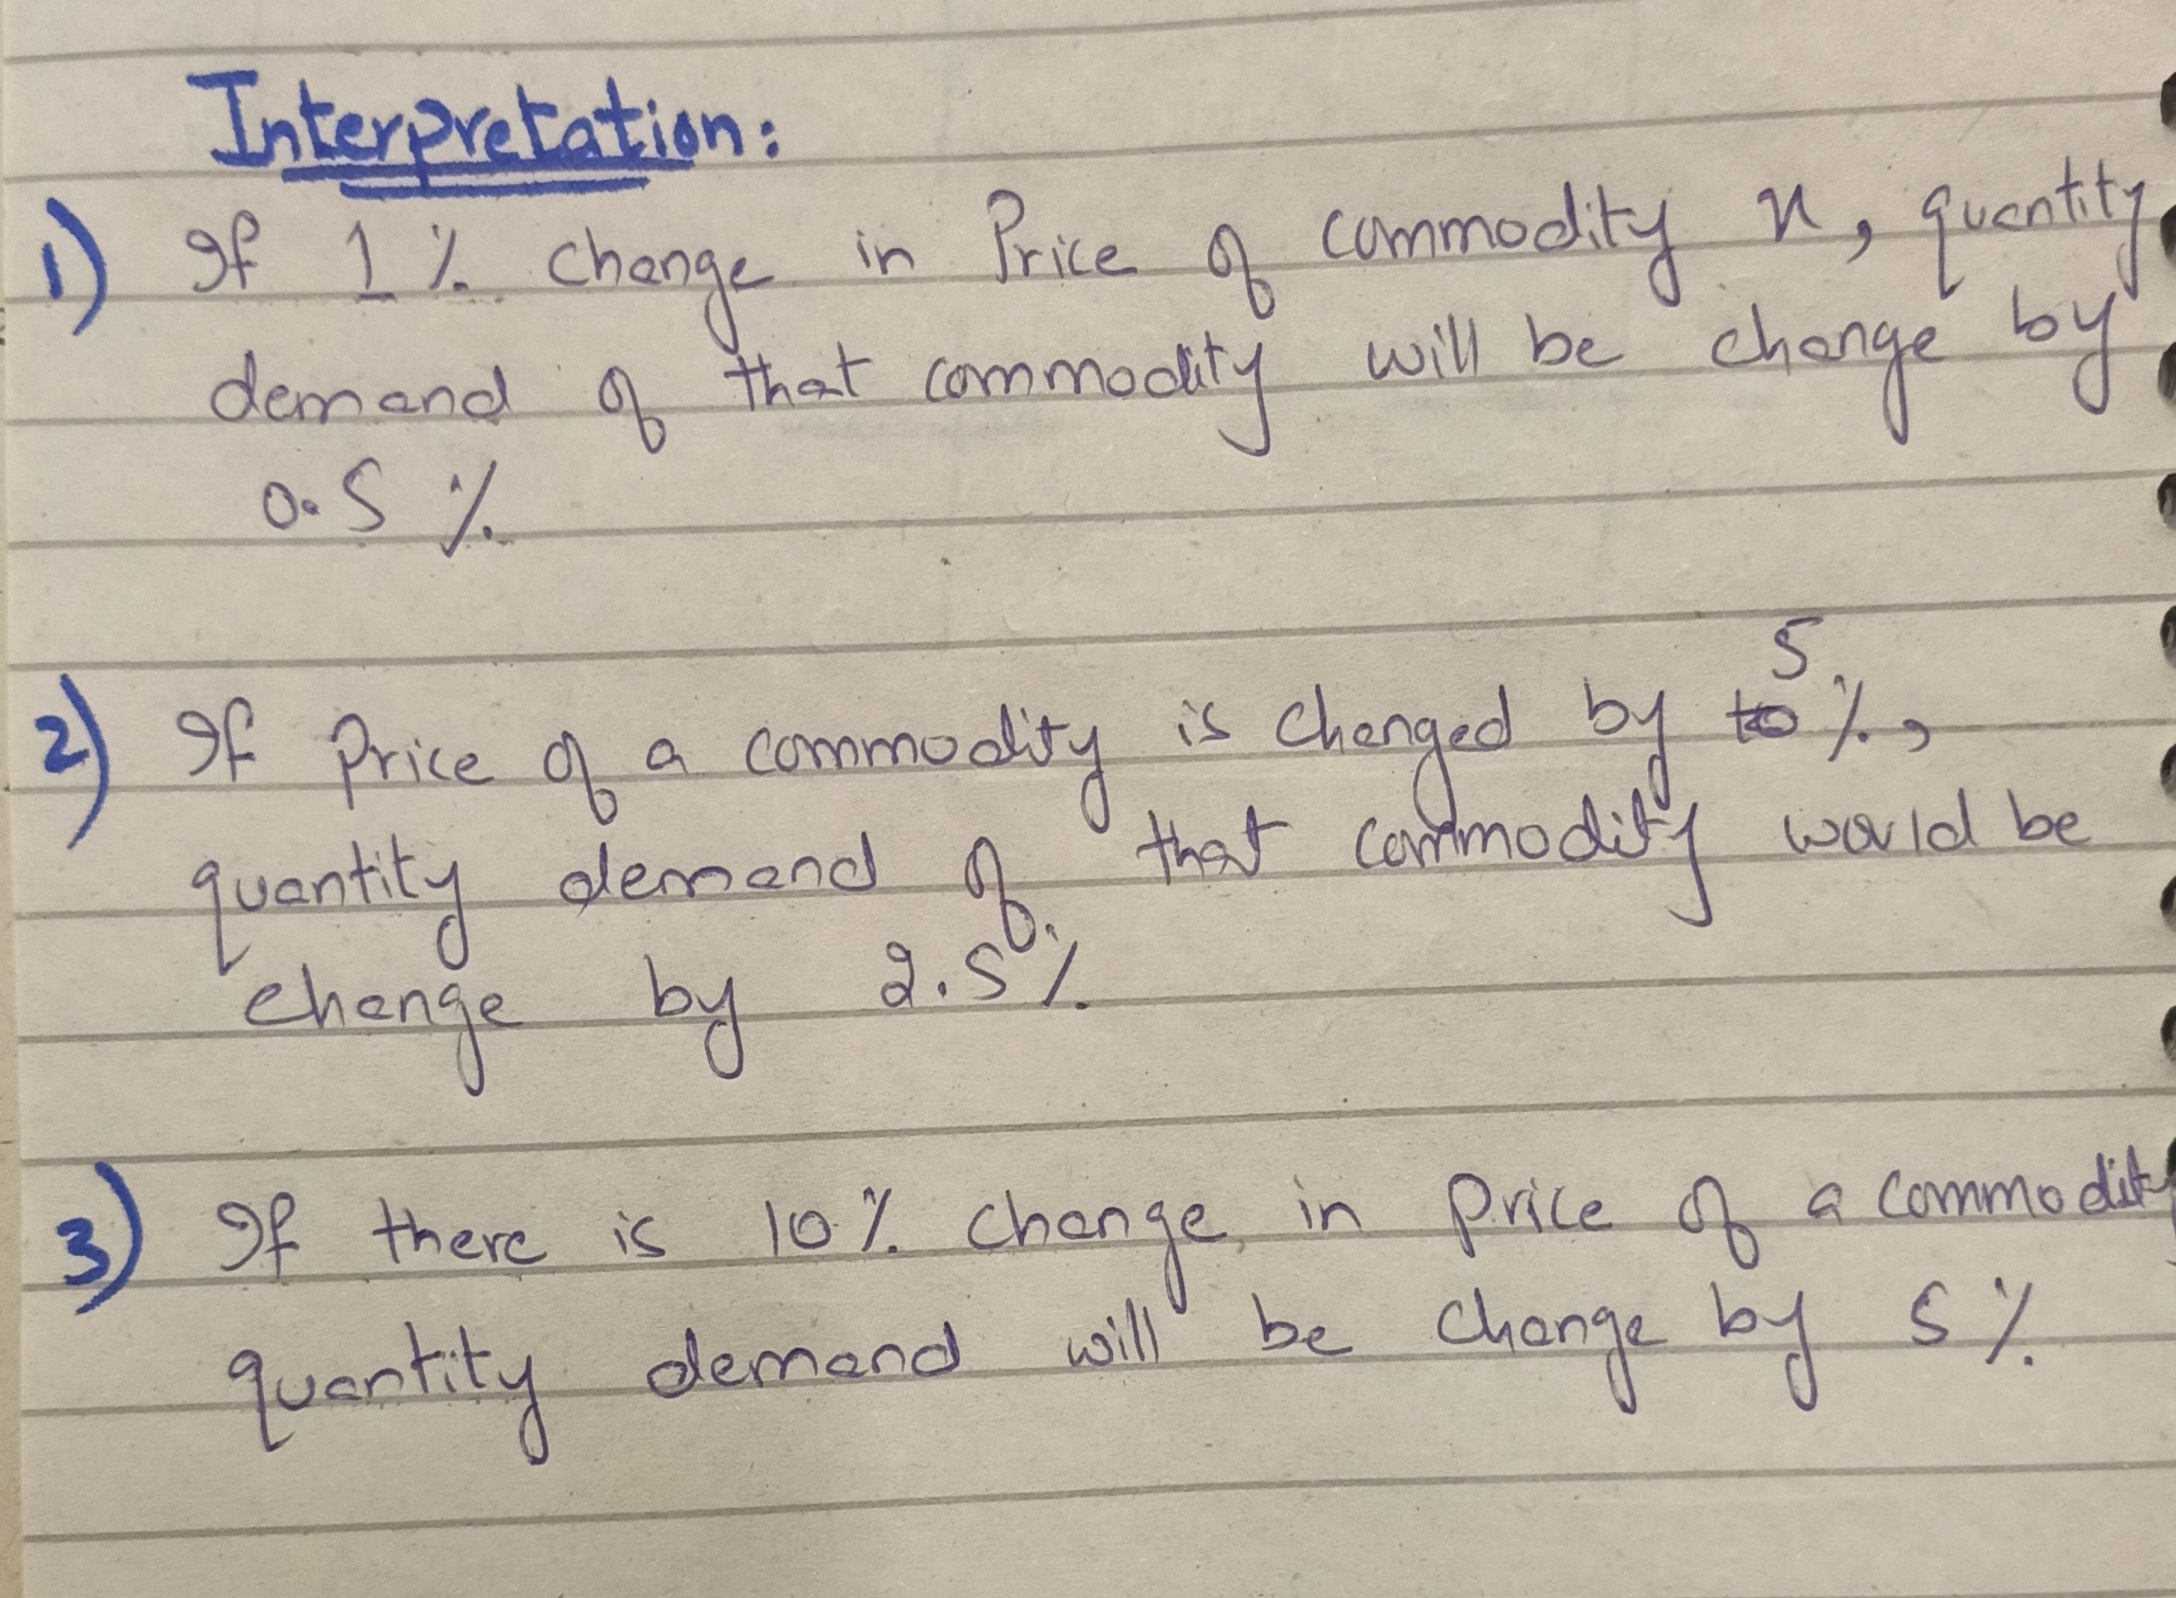 Interpretation:
1) If 1 % change in Price of commodity x, quantity
demand of that commodity will be change by
0.5 %
2) If Price of a commodity is changed by 5 %,
quantity demand of that commodity would be
change by 2.5%
3) If there is 10% change in price of a commodity
quantity demand will be change by 5 %